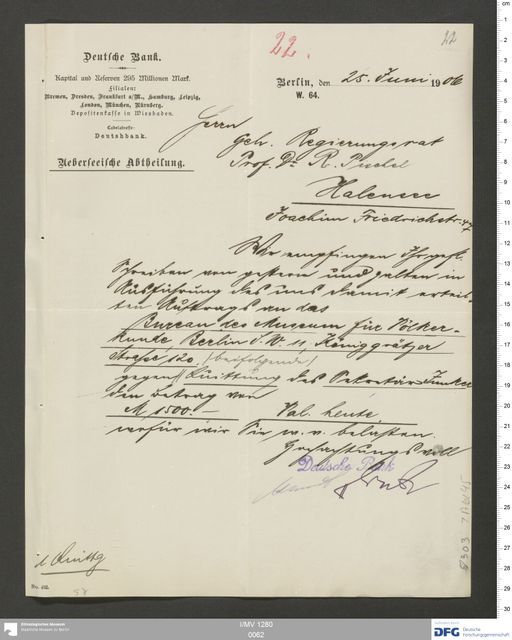 22.
22
Deutsche Bank.
Kapital und Reserven 295 Millionen Mark.
Filialen:
Bremen, Dresden, Frankfurt a/M., Hamburg, Leipzig,
London, München, Nürnberg.
Depositenkasse in Wiesbaden.
Cabeladresse:
Deutshbank.
Ueberseeische Abtheilung.
Berlin, den 25. Juni 1906
W. 64.
Herrn
Geh. Regierungsrat
Prof. Dr. R. Pischel
Halensee
Joachim Friedrichstr. 47
Wir empfingen Ihr gefl.
Schreiben von gestern und zalten in
Ausführung des uns damit erteil-
ten Auftrags an das
Bureau des Museum für Völker-
kunde Berlin S.W. 11, Königgrätzer
Strasse 120 (beifolgende)
gegen Quittung des Sekretär Junker
den Betrag von
M 1500.- Val. heute
wofür wir Sie w. v. belasten.
Hochachtungsvoll
Deutsche Bank
1 Quittg
No. 402.
I/MV 1280
0062
Ethnologisches Museum
Staatliche Museen zu Berlin
DFG Deutsche
Forschungsgemeinschaft